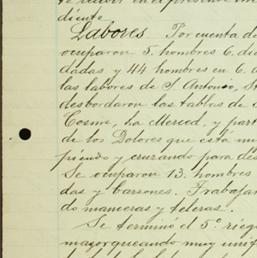 diente
Labores Por cuenta d
ocuparon 5. hombres 6. di
dadas y 44 hombres en 6. d
las labores de S. Antonio, S
desbordaron las tablas de
Cosme, la Merced, y part
de los Dolores que está
piendo y cruzando para des
Se ocuparon 13. hombres
das y barsones. Trabajar
do manceras y teleras.
Se terminó el 5º rieg
mayorqueando muy uni